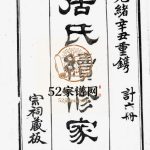 光緒辛丑重鐫
計六冊
居氏續修家
52家谱网
宗祠藏板